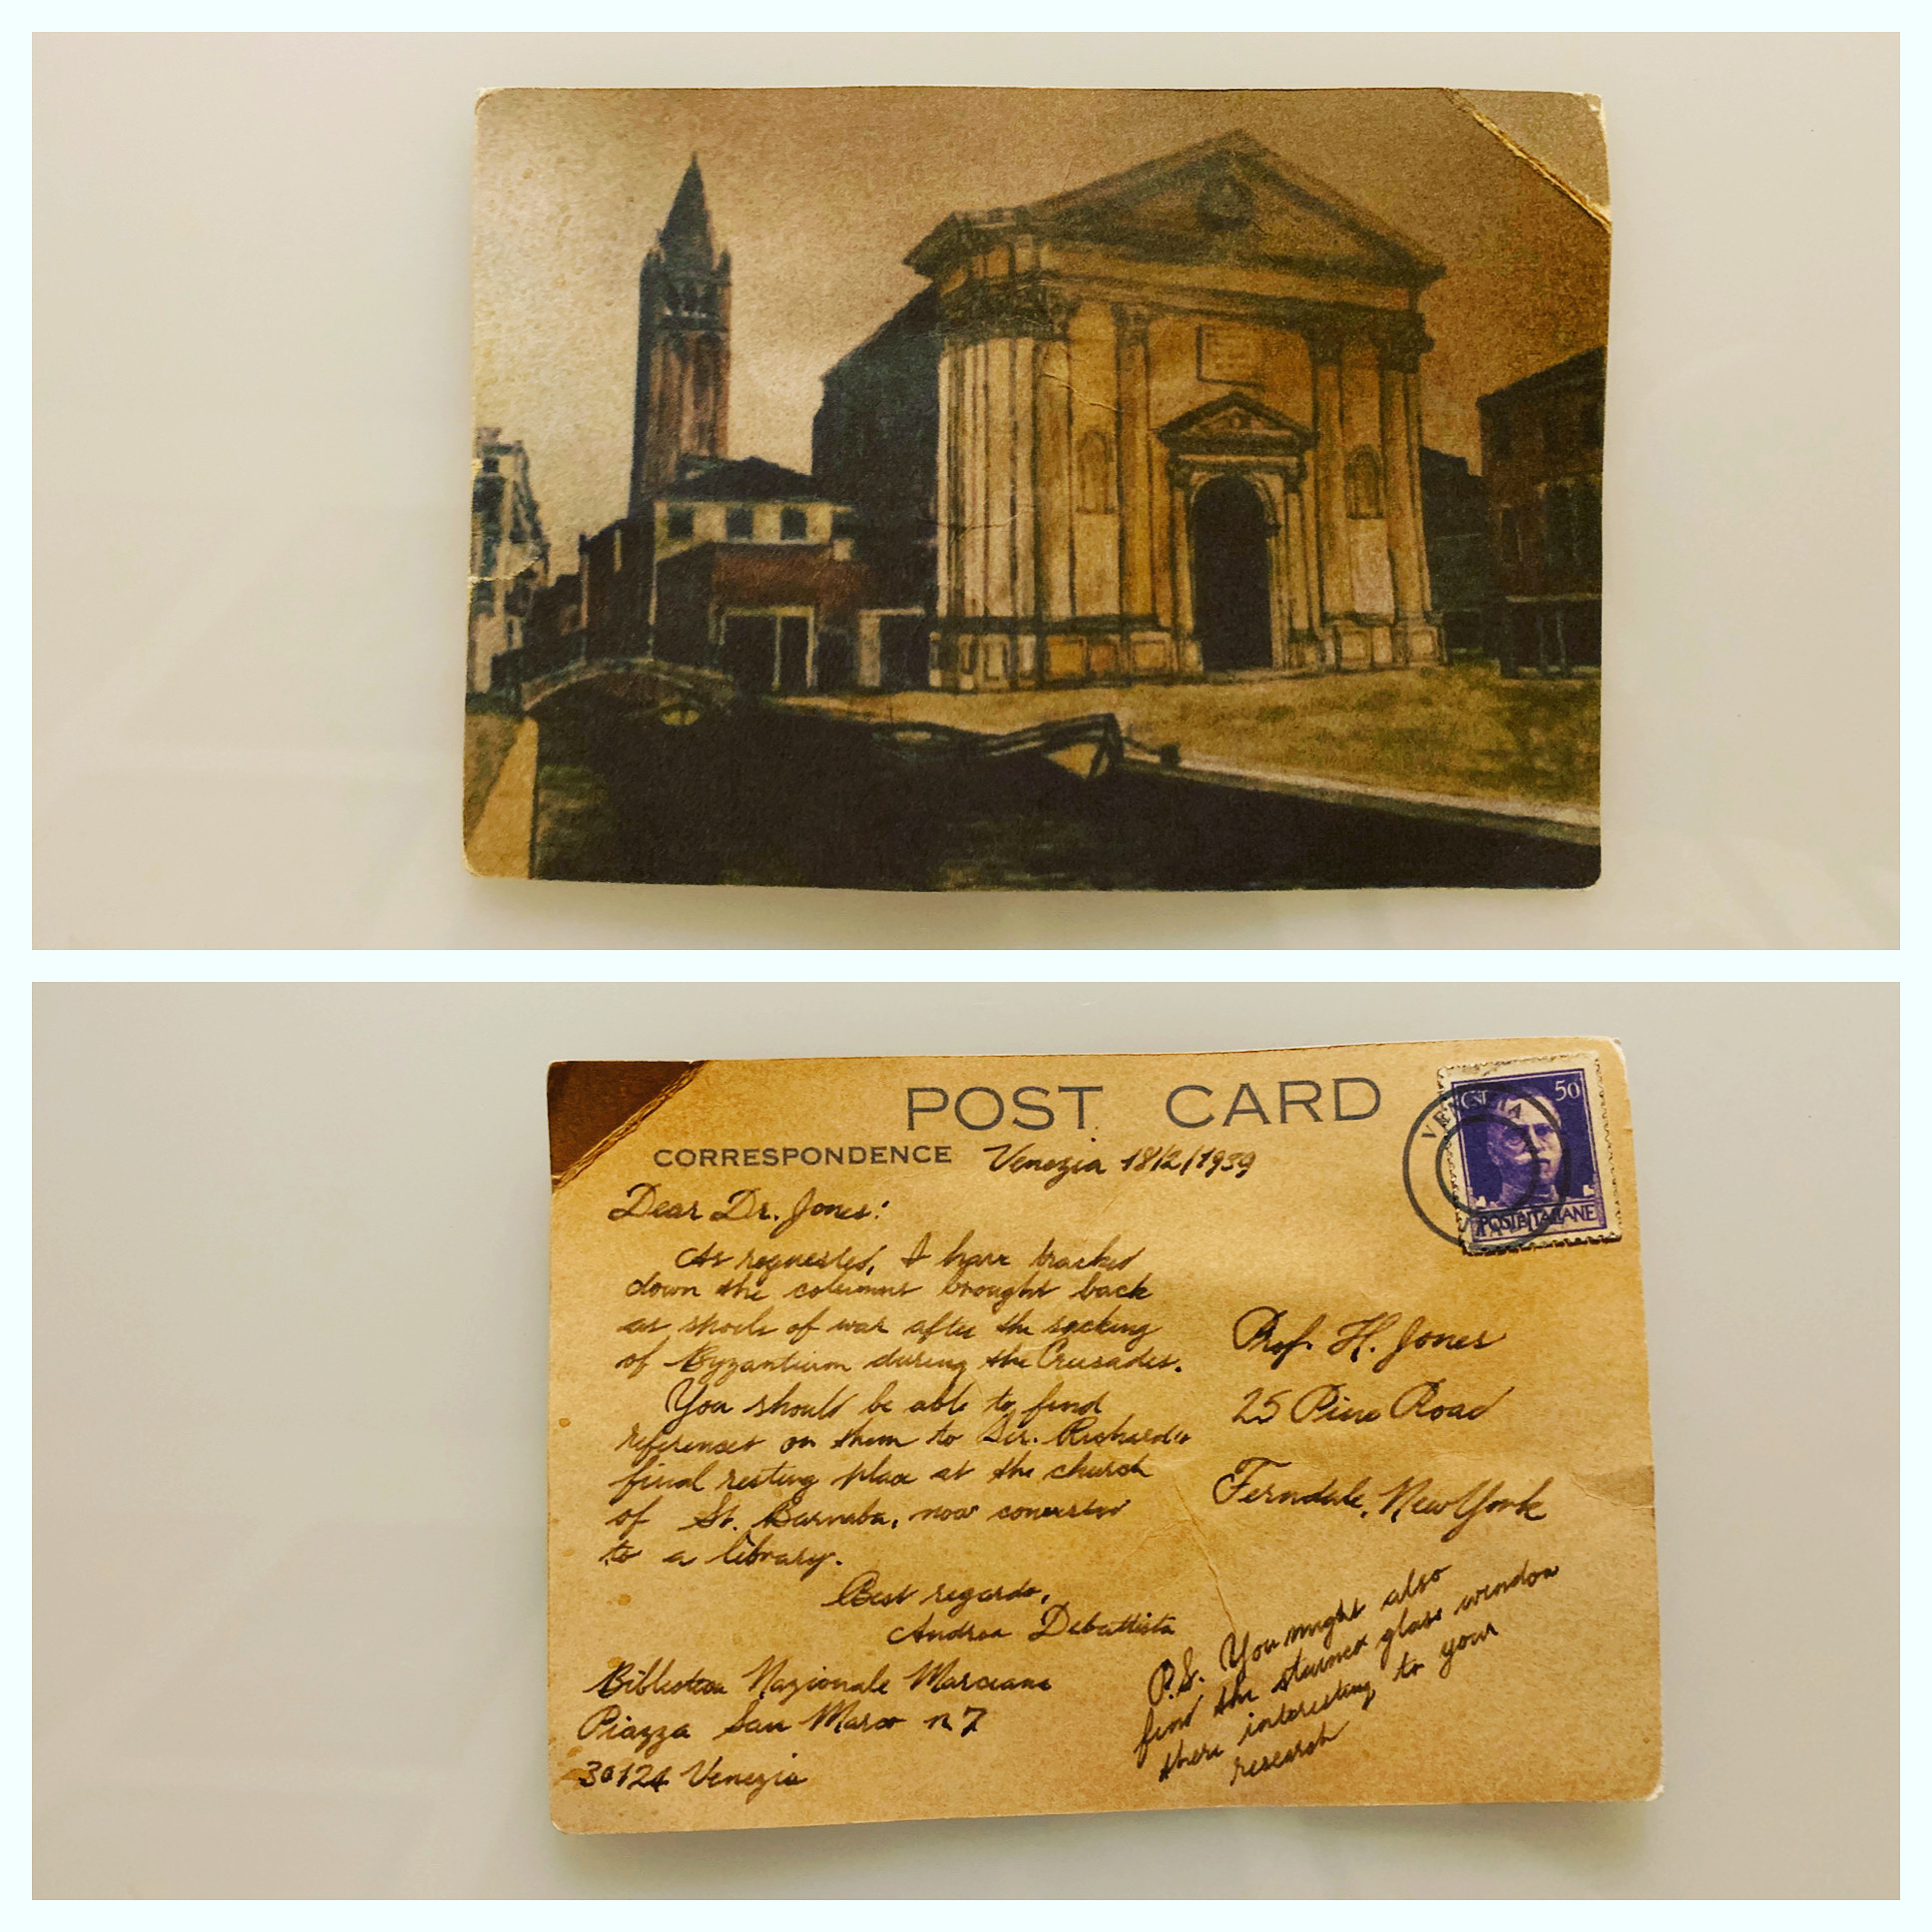 POST CARD
CORRESPONDENCE Venezia 18/2/1939
VENEZIA
50
POSTE ITALIANE
Dear Dr. Jones:
As requested, I have tracked
down the columns brought back
as spoils of war after the sacking
of Byzantium during the Crusades.
You should be able to find
references on them to Sir. Richard's
final resting place at the church
of St. Barnaba, now converted
to a library.
Best regards,
Andrea Debattista
Biblioteca Nazionale Marciana
Piazza San Marco n 7
30124 Venezia
Prof. H. Jones
25 Pine Road
Ferndale, New York
P.S. You might also
find the stained glass window
there interesting to your
research